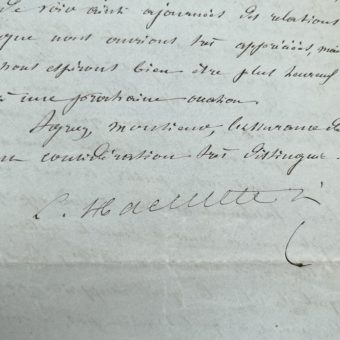 de voir ainsi ajournées des relations
que nous aurions très appréciées, mai
nous espérons bien être plus heureux
à une prochaine occasion
Agréez, monsieur, l'assurance de
considération très distinguée
L. Hachette